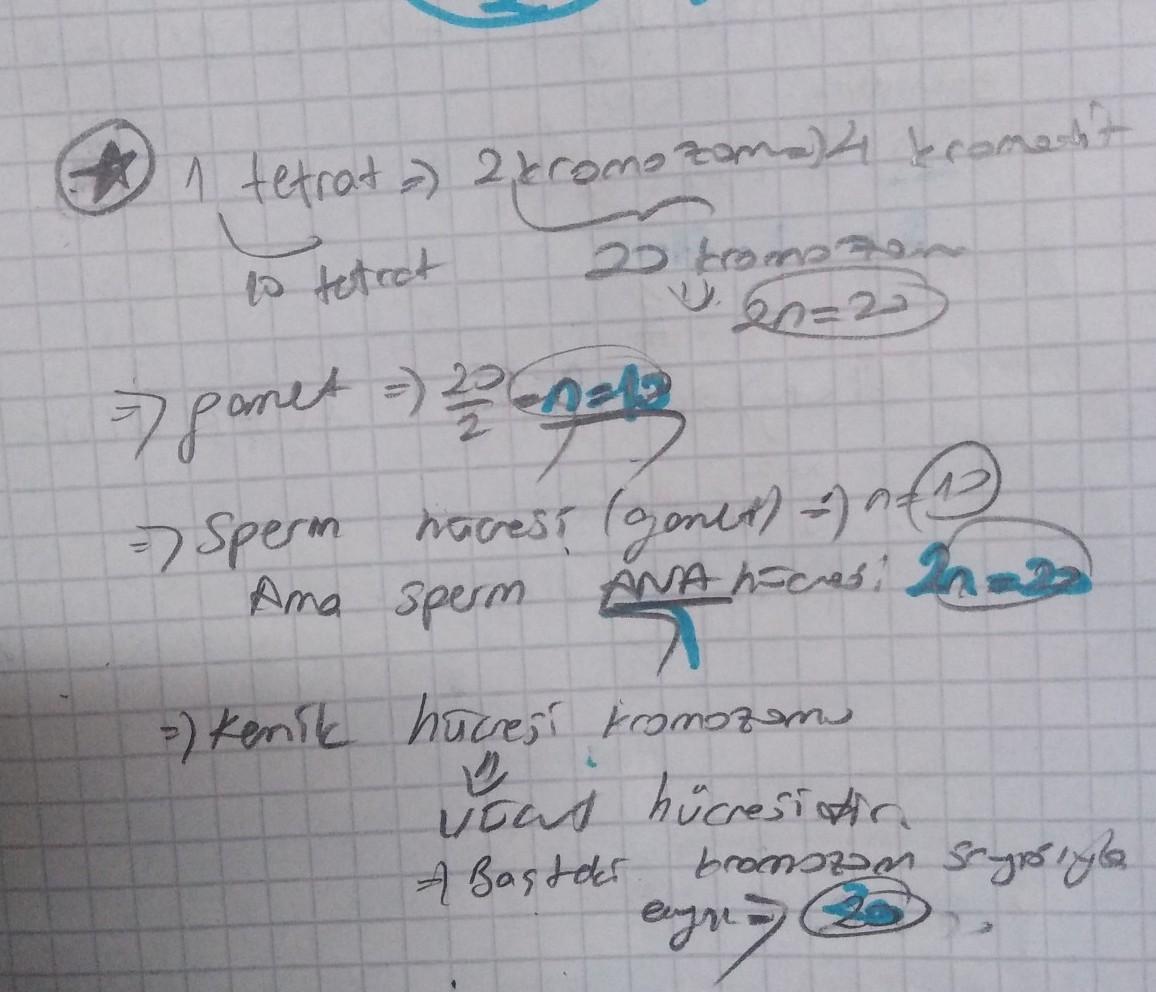 1 tetrat => 2 kromozom => 4 kromatit
10 tetrat 20 kromozom
2n=20
=> gamet => 20/2 = n=10
=> Sperm hücresi (gamet) => n=10
Ama sperm ANA hücresi 2n=20
=> Kemik hücresi kromozomu
vücut hücresidir.
=> Baştaki kromozom sayısıyla
aynı => 20